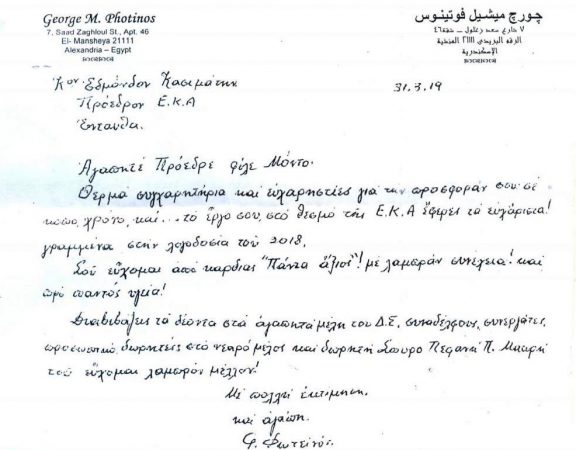 George M. Photinos
7, Saad Zaghloul St., Apt. 46
El- Mansheya 21111
Alexandria – Egypt
چورچ ميشيل فوتينوس
٧ شارع سعد زغلول - شقة ٤٦
الرقم البريدى ٢١١١١ المنشية
الإسكندرية
Κον Εδμόνδον Κασιμάτην
31.3.19
Πρόεδρον Ε.Κ.Α
Ενταύθα.
Αγαπητέ Πρόεδρε φίλε Μόντο.
Θερμά συγχαρητήρια και εὐχαρηστίες για την προσφοράν σου σε
κόπο, χρόνο, και... το ἔργο σου, στο θεσμό της Ε.Κ.Α ἔφερε τα εὐχάριστα!
γραμμένα στην λογοδοσία τοῦ 2018.
Σοῦ εὔχομαι από καρδιας "Πάντα ἄξιοι"! με λαμπράν συνέχεια! και
πρό παντός υγεία!
Διαβιβάζεις τα δέοντα στά ἀγαπητά μέλη του Δ.Σ, συναδέλφους, συνεργάτες,
προσωπικό, δωρητές στο νεαρό μέλος και δωρητή Σπυρο Πεφάνη Π. Μακρή
τοῦ εὔχομαι λαμπρόν μέλλον!
Με πολλή εκτιμηση.
και ἀγάπη.
Φωτεινός.